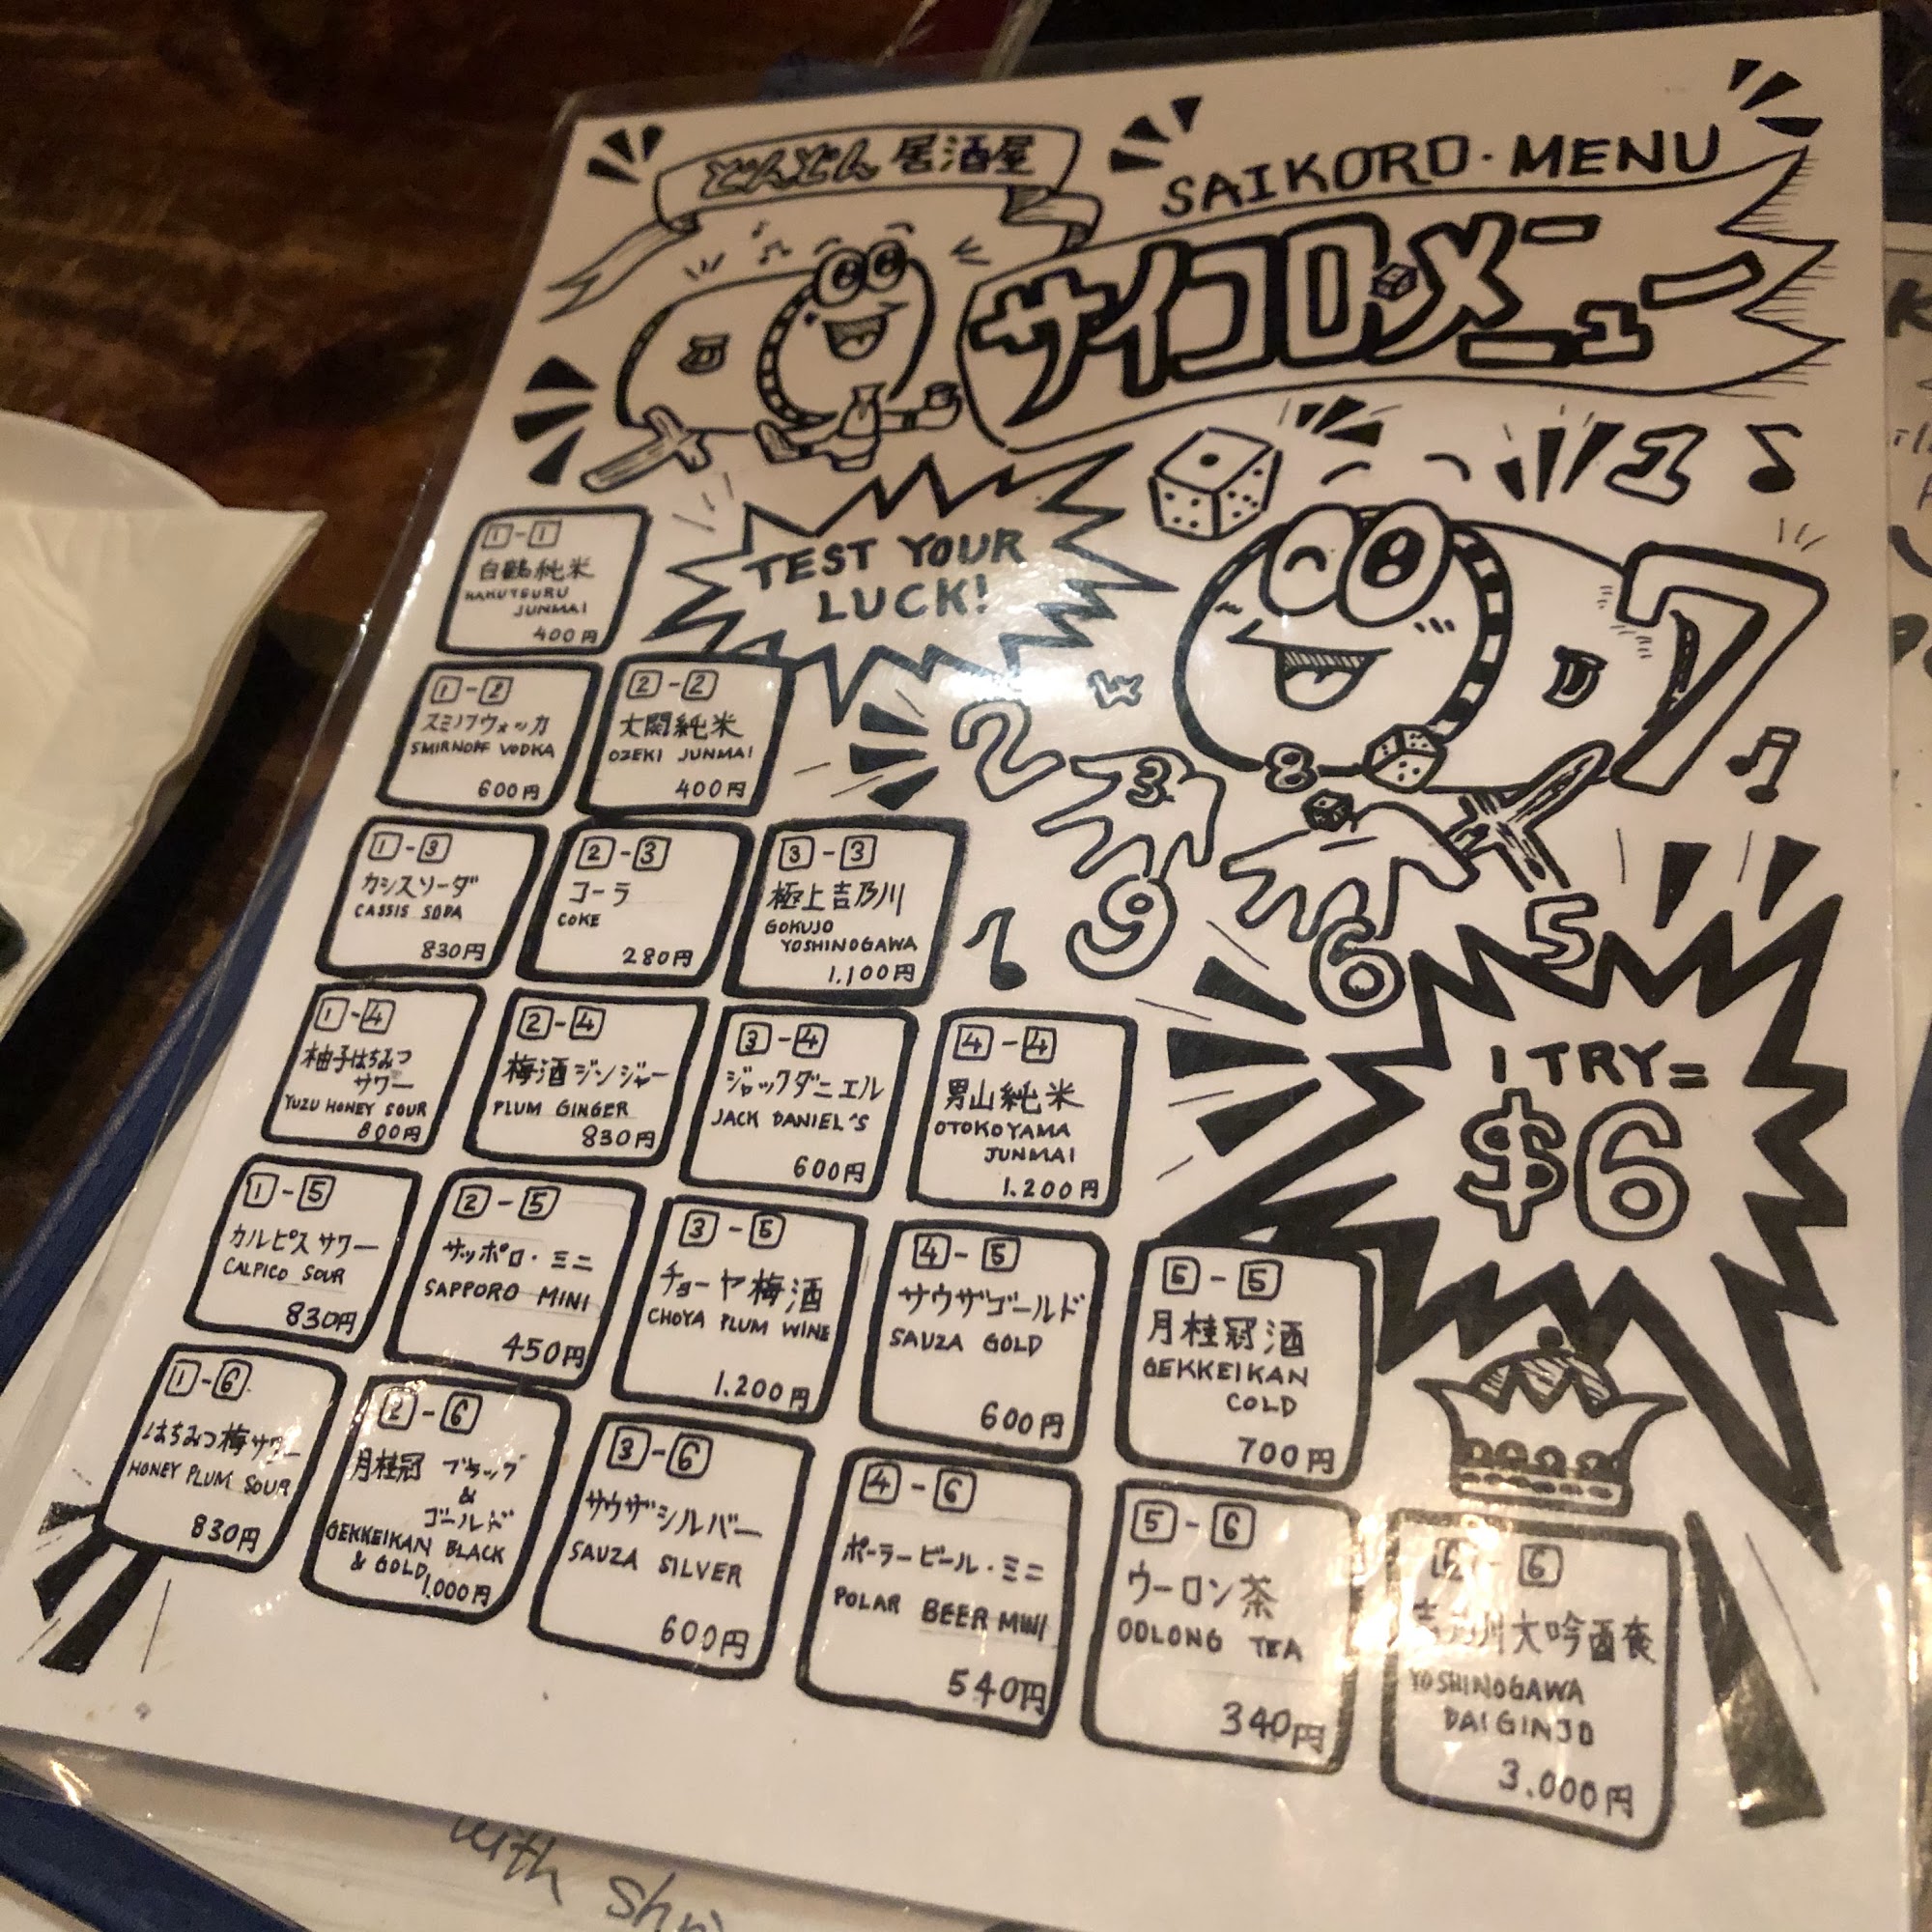 どんどん居酒屋
SAIKORO・MENU
サイコロ・メニュー
TEST YOUR
LUCK!
1
7
2
3
8
9
6
5
1-1
白鶴純米
HAKUTSURU
JUNMAI
400円
1-2
スミノフウォッカ
SMIRNOFF VODKA
600円
2-2
大関純米
OZEKI JUNMAI
400円
1-3
カシスソーダ
CASSIS SODA
830円
2-3
コーラ
COKE
280円
3-3
極上吉乃川
GOKUJO
YOSHINOGAWA
1.100円
1-4
柚子はちみつ
サワー
YUZU HONEY SOUR
800円
2-4
梅酒ジンジャー
PLUM GINGER
830円
3-4
ジャックダニエル
JACK DANIEL'S
600円
4-4
男山純米
OTOKOYAMA
JUNMAI
1.200円
1 TRY=
$6
1-5
カルピスサワー
CALPICO SOUR
830円
2-5
サッポロ・ミニ
SAPPORO MINI
450円
3-5
チョーヤ梅酒
CHOYA PLUM WINE
1.200円
4-5
サウザゴールド
SAUZA GOLD
600円
5-5
月桂冠酒
GEKKEIKAN
COLD
700円
1-6
はちみつ梅サワー
HONEY PLUM SOUR
830円
2-6
月桂冠 ブラック
&
ゴールド
GEKKEIKAN BLACK
& GOLD
1.000円
3-6
サウザシルバー
SAUZA SILVER
600円
4-6
ポーラービール・ミニ
POLAR BEER MINI
540円
5-6
ウーロン茶
OOLONG TEA
340円
6-6
吉乃川大吟醸
YOSHINOGAWA
DAIGINJO
3.000円
with